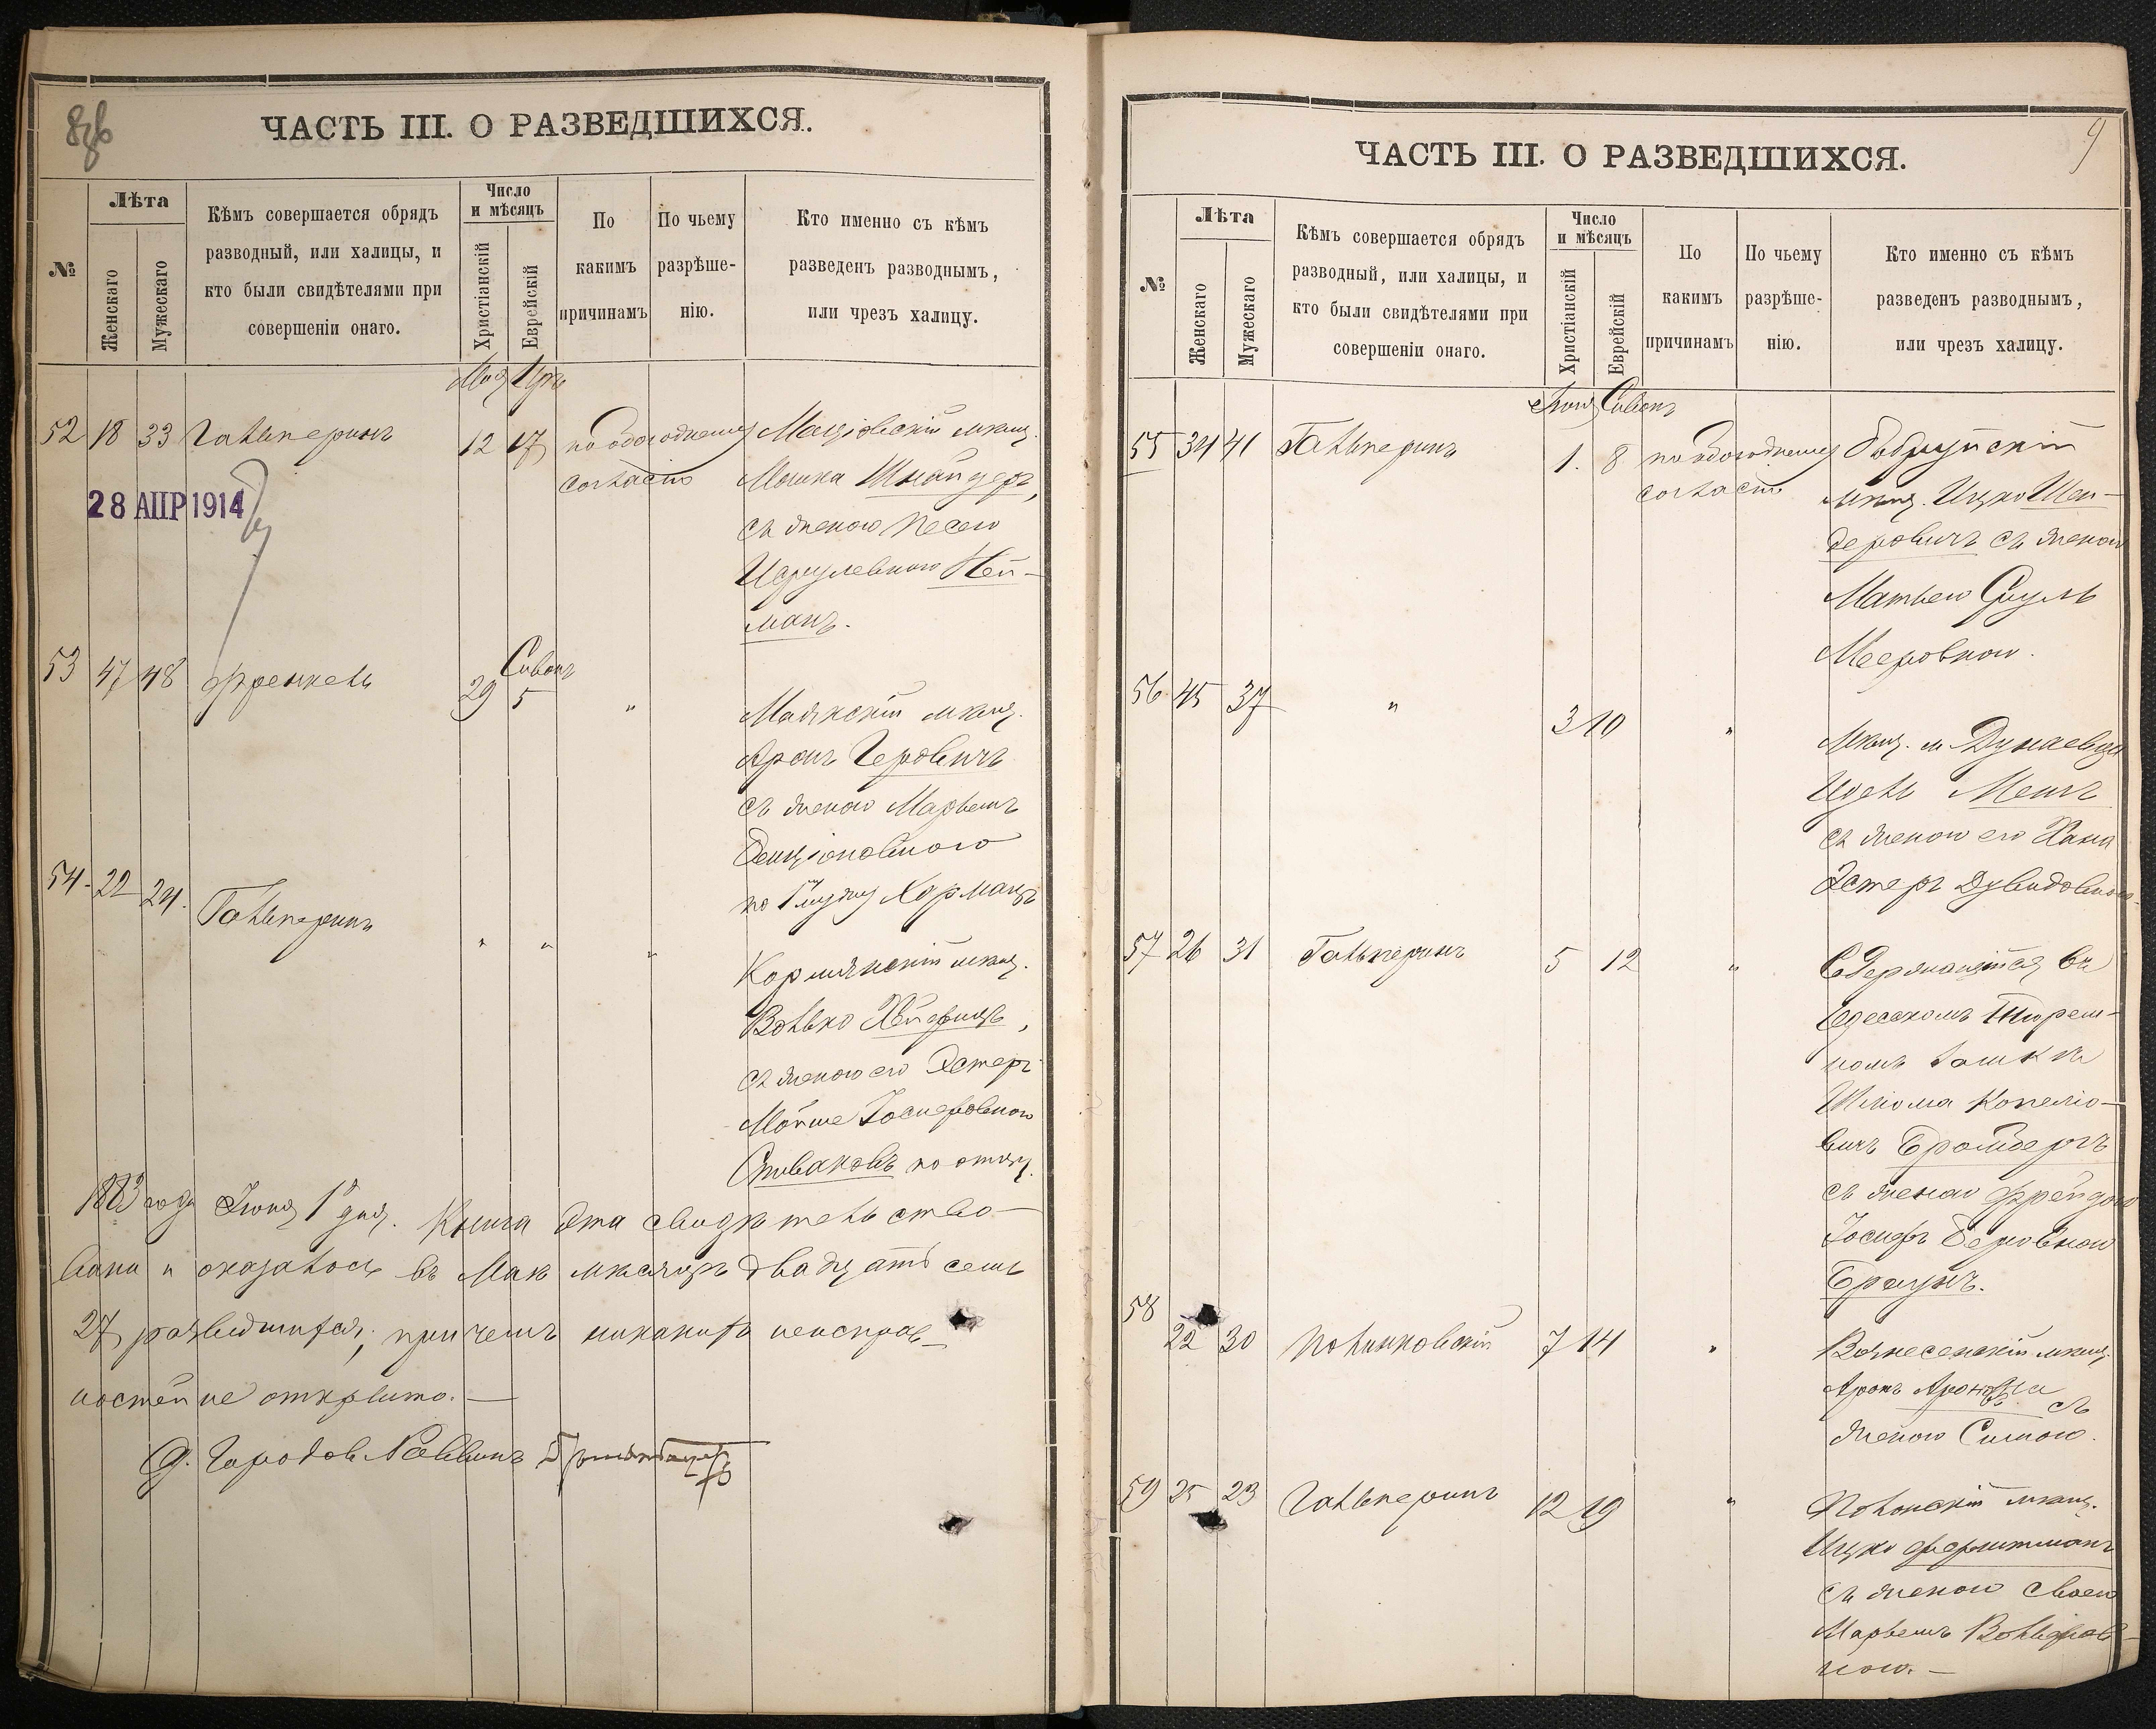 ЧАСТЬ III. О РАЗВЕДШИХСЯ.
№
Лѣта
Женскаго
Мужескаго
Кѣмъ совершается обрядъ
разводный, или халицы, и
кто были свидѣтелями при
совершеніи онаго.
Число
и мѣсяцъ
Христіанскій
Еврейскій
По
какимъ
причинамъ
По чьему
разрѣше-
нію.
Кто именно съ кѣмъ
разведенъ разводнымъ,
или чрезъ халицу.
Мая Іяръ
52 18 33 Гальперинъ 12 17 по обоюдному
согласію
мѣщ.
Мошка Шнайдеръ,
съ женою Песею
Исрулевною Ней-
манъ.
28 АПР 1914
Сивонъ
53 47 48 Френкель 29 5 "
Маякскій мѣщ.
Аронъ Геровичъ
съ женою Марьемъ
Бенціоновною
по мужу
54 22 24 Гальперинъ " " "
мѣщ.
Волько
съ женою его Эстеръ
Мойше Іосифовною
Спиваковъ по отцу.
1883 года Іюня 1 дня. Книга эта свидѣтельство-
вана и оказалось въ Маѣ мѣсяцѣ двадцать семь
27 разведшихся, причемъ никакихъ неисправ-
ностей не открыто.—
Городов Раввинъ
ЧАСТЬ III. О РАЗВЕДШИХСЯ.
9
№
Лѣта
Женскаго
Мужескаго
Кѣмъ совершается обрядъ
разводный, или халицы, и
кто были свидѣтелями при
совершеніи онаго.
Число
и мѣсяцъ
Христіанскій
Еврейскій
По
какимъ
причинамъ
По чьему
разрѣше-
нію.
Кто именно съ кѣмъ
разведенъ разводнымъ,
или чрезъ халицу.
Іюня Сивонъ
55 34 41 Гальперинъ 1. 8 по обоюдному
согласію
Бобруйскій
мѣщ. Ицко Шен-
деровичъ съ женою
Матлею Сруль
Мееровною.
56 45 37 " 3 10 "
Мѣщ. м. Дунаевцы
Идель Менъ
съ женою его Хана
Эстеръ Дувидовною
57 26 31 Гальперинъ 5 12 "
Содержащійся въ
Одесскомъ Тюрем-
номъ замкѣ
Шлома Копеліо-
вичъ Бромбергъ
съ женою Фрейдою
Іосифъ Беровною
Браунъ.
58 22 30 Полинковскій 7 14 "
Вознесенскій мѣщ.
Аронъ съ
женою Симою.
59 25 23 Гальперинъ 12 19 "
мѣщ.
Ицко
съ женою своею
Марьемъ Вольфов-
ною.—